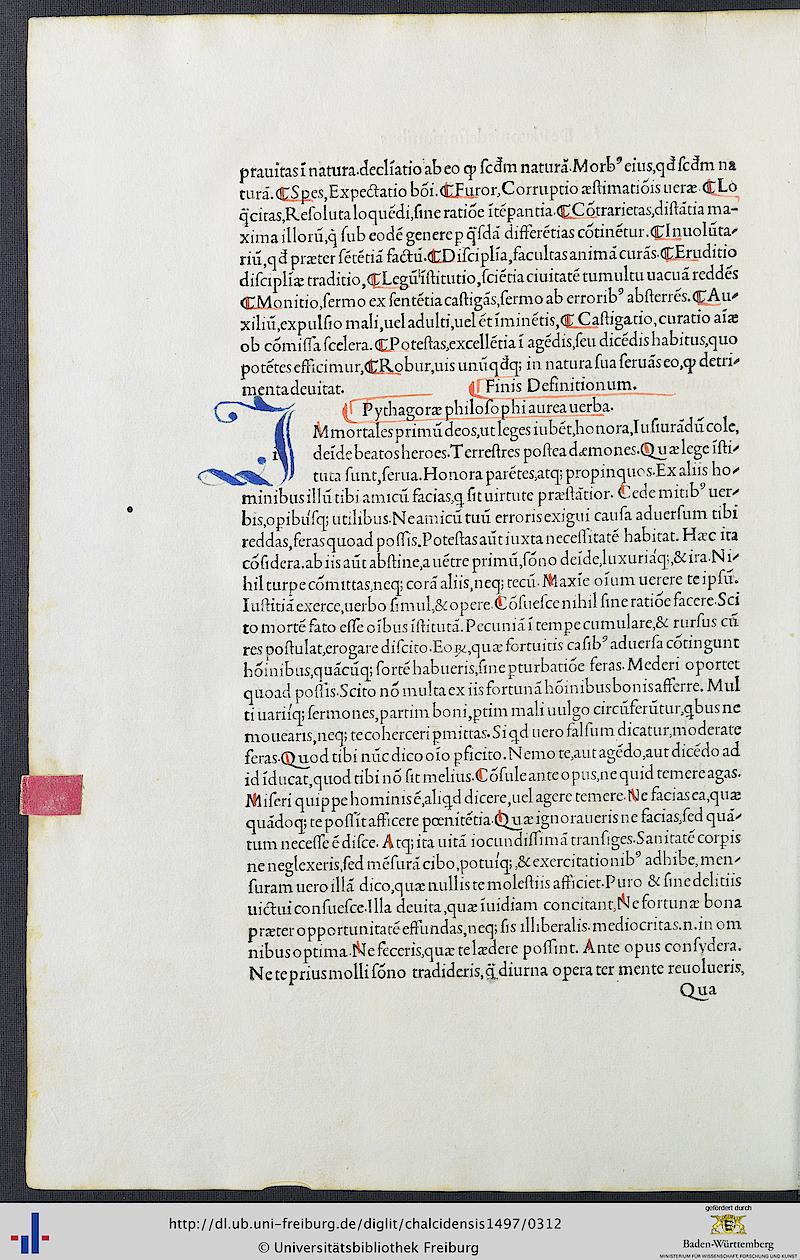 prauitas ī natura.declīatio ab eo ꝙ scďm naturā.Morbꝰ eius,qď scďm na
turā.⸿Spes,Expectatio hōi.⸿Furor,Corruptio æstimatiōis ueræ.⸿Lo
q̄citas,Resoluta loquēdi,sine ratiōe ītēpantia.⸿Cōtrarietas,distātia ma-
xima illorū,q̄ sub eodē genere p q̄sdā differētias cōtinētur.⸿Inuolūta-
riū,qď præter sētētiā factū.⸿Disciplīa,facultas animā curās.⸿Eruditio
disciplīæ traditio,⸿Legū īstitutio,sciētia ciuitatē tumultu uacuā reddēs
⸿Monitio,sermo ex sentētia castigās,sermo ab erroribꝰ absterrēs.⸿Au-
xiliū,expulsio mali,uel adulti,uel ēt īminētis,⸿Castigatio,curatio aīæ
ob cōmissa scelera.⸿Potestas,excellētia ī agēdis,seu dicēdis habitus,quo
potētes efficimur,⸿Robur,uis unūqďq; in natura sua seruās eo,ꝙ detri-
menta deuitat. ⸿Finis Definitionum.
⸿Pythagoræ philosophi aurea uerba.
IMmortales primū deos,ut leges iubēt,honora,Iusiurādū cole,
deīde beatos heroes.Terrestres postea dæmones.Quæ lege īsti-
tuta sunt,serua.Honora parētes,atq; propinquos.Ex aliis ho-
minibus illū tibi amicū facias,q sit uirtute præstātior. Cede mitibꝰ uer-
bis,opibusq; utilibus.Ne amicū tuū erroris exigui causa aduersum tibi
reddas,feras quoad possis.Potestas aūt iuxta necessitatē habitat. Hæc ita
cōsidera.ab iis aūt abstine,a uētre primū,sōno deīde,luxuriaq;,& ira.Ni-
hil turpe cōmittas,neq; corā aliis,neq; tecū.Maxīe oīum uerere te ipsū.
Iustitiā exerce,uerbo simul,& opere.Cōsuesce nihil sine ratiōe facere.Sci
to mortē fato esse oībus īstitutā.Pecuniā ī tempe cumulare,& rursus cū
res postulat,erogare discito.Eoꝝ,quæ fortuitis casibꝰ aduersa cōtingunt
hōinibus,quācūq; sortē habueris,sine pturbatiōe feras. Mederi oportet
quoad possis.Scito nō multa ex iis fortunā hōinibus bonis afferre. Mul
ti uariiq; sermones,partim boni,ptim mali uulgo circūferūtur,qbus ne
mouearis,neq; te coherceri pmittas.Si qd uero falsum dicatur,moderate
feras.Quod tibi nūc dico oīo pficito.Nemo te,aut agēdo,aut dicēdo ad
id īducat,quod tibi nō sit melius.Cōsule ante opus,ne quid temere agas.
Miseri quippe hominis ē,aliqd dicere,uel agere temere.Ne facias ea,quæ
quādoq; te possīt afficere pœnitētia.Quæ ignoraueris ne facias,sed quā-
tum necesse ē disce. Atq; ita uitā iocundissimā transiges.Sanitatē corpis
ne neglexeris,sed mēsurā cibo,potuiq;,& exercitationibꝰ adhibe,men-
suram uero illā dico,quæ nullis te molestiis afficiet.Puro & sine delitiis
uictui consuesce.Illa deuita,quæ īuidiam concitant,Ne fortunæ bona
præter opportunitatē effundas,neq; sis illiberalis.mediocritas.n.in om
nibus optima.Ne feceris,quæ te lædere possint. Ante opus consydera.
Ne te prius molli sōno tradideris,q̄ diurna opera ter mente reuolueris,
Qua
http://dl.ub.uni-freiburg.de/diglit/chalcidensis1497/0312
© Universitätsbibliothek Freiburg
gefördert durch
Baden-Württemberg
MINISTERIUM FÜR WISSENSCHAFT, FORSCHUNG UND KUNST